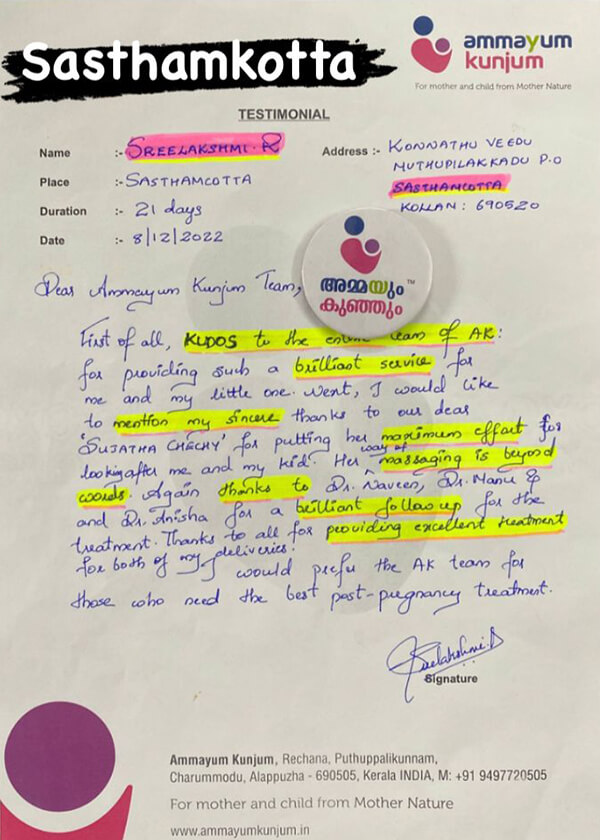 Sasthamkotta
ammayum
kunjum
For mother and child from Mother Nature
TESTIMONIAL
Name :- SREELAKSHMI. R
Address :- KONNATHU VEEDU
MUTHUPILAKKADU P.O
SASTHAMCOTTA
KOLLAM : 690520
Place :- SASTHAMCOTTA
Duration :- 21 days
Date :- 8/12/2022
അമ്മയും TM
കുഞ്ഞും
Dear Ammayum Kunjum Team,
First of all, KUDOS to the entire team of AK:
for providing such a brilliant service for
me and my little one. Next, I would like
to mention my sincere thanks to our dear
'SUJATHA CHECHY' for putting her maximum effort for
looking after me and my kid. Her way of massaging is beyond
words. Again thanks to Dr. Naveen, Dr. Manu &
and Dr. Anisha for a brilliant follow up for the
treatment. Thanks to all for providing excellent treatment
for both of my deliveries!
I would prefer the AK team for
those who need the best post-pregnancy treatment.
Sreelakshmi.R
Signature
Ammayum Kunjum, Rechana, Puthuppalikunnam,
Charummodu, Alappuzha - 690505, Kerala INDIA, M: +91 9497720505
For mother and child from Mother Nature
www.ammayumkunjum.in